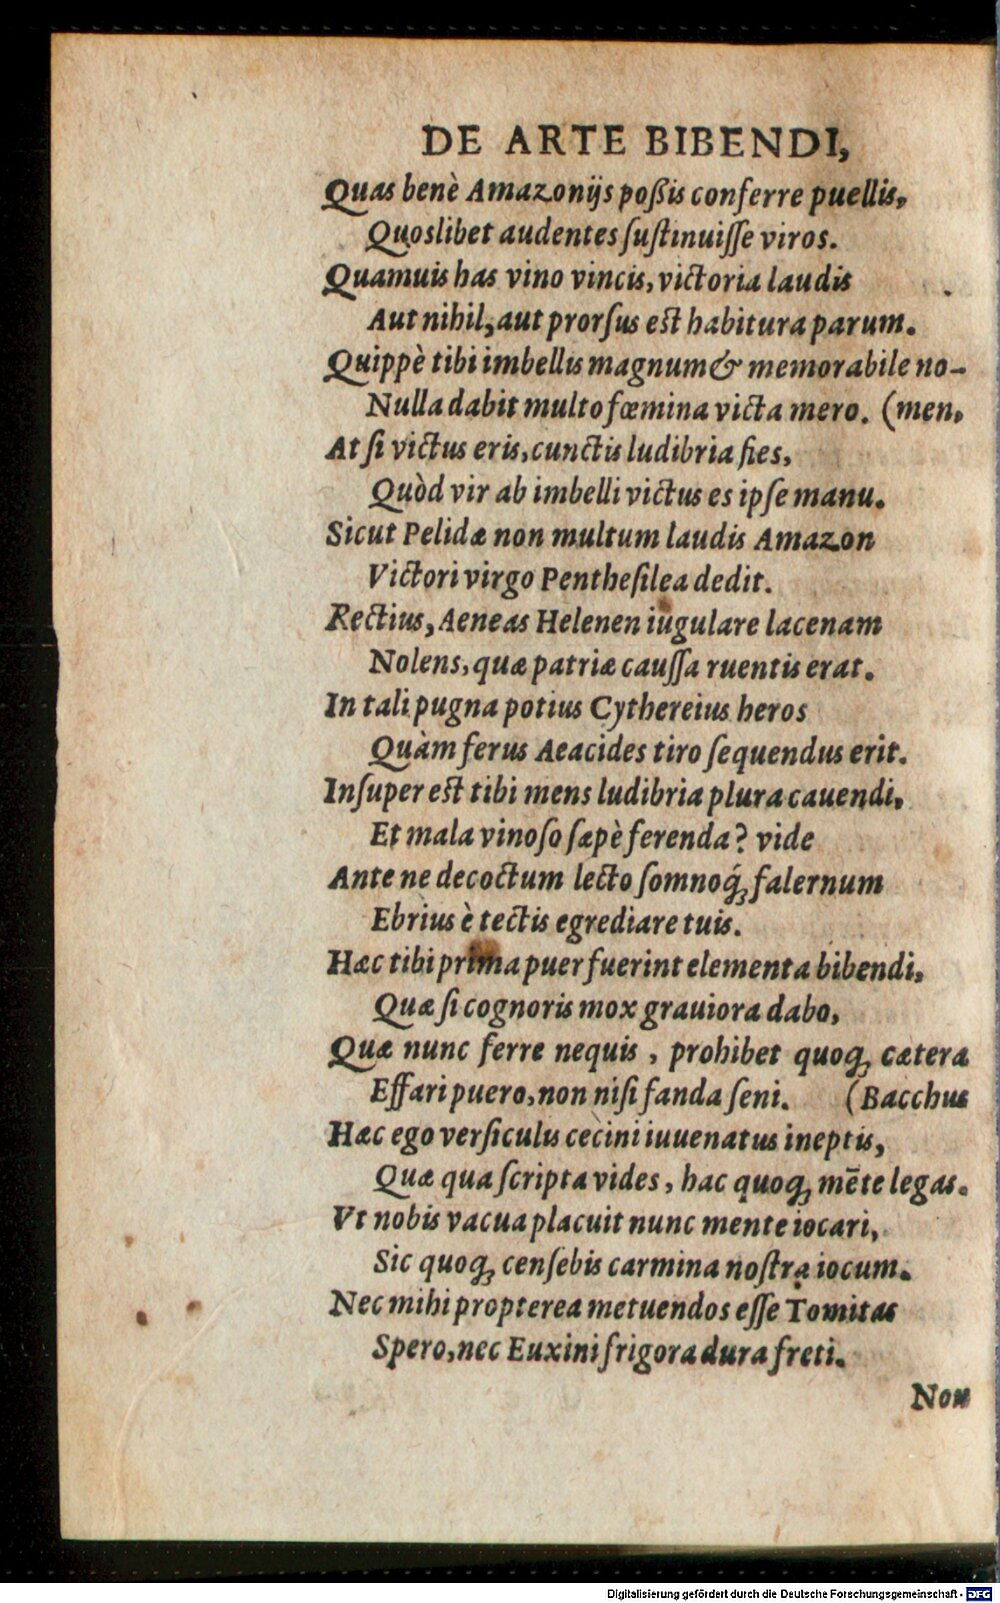 DE ARTE BIBENDI,
Quas benè Amazonijs poßis conferre puellis,
Quoslibet audentes ſuſtinuiſſe viros.
Quamuis has vino vincis, victoria laudis
Aut nihil, aut prorſus eſt habitura parum.
Quippè tibi imbellis magnum & memorabile no-
Nulla dabit multo fœmina victa mero. (men.
At ſi victus eris, cunctis ludibria fies,
Quòd vir ab imbelli victus es ipſe manu.
Sicut Pelidæ non multum laudis Amazon
Victori virgo Pentheſilea dedit.
Rectius, Aeneas Helenen iugulare lacenam
Nolens, quæ patriæ cauſſa ruentis erat.
In tali pugna potius Cythereius heros
Quàm ferus Aeacides tiro ſequendus erit.
Inſuper eſt tibi mens ludibria plura cauendi,
Et mala vinoſo ſæpè ferenda? vide
Ante ne decoctum lecto ſomnoq́; falernum
Ebrius è tectis egrediare tuis.
Hæc tibi prima puer fuerint elementa bibendi,
Quæ ſi cognoris mox grauiora dabo,
Quæ nunc ferre nequis, prohibet quoq; cætera
Effari puero, non niſi fanda ſeni. (Bacchus
Hæc ego verſiculis cecini iuuenatus ineptis,
Quæ qua ſcripta vides, hac quoq; mēte legas.
Vt nobis vacua placuit nunc mente iocari,
Sic quoq; cenſebis carmina noſtra iocum.
Nec mihi propterea metuendos eſſe Tomitas
Spero, nec Euxini frigora dura freti.
Non
Digitalisierung gefördert durch die Deutsche Forschungsgemeinschaft - DFG